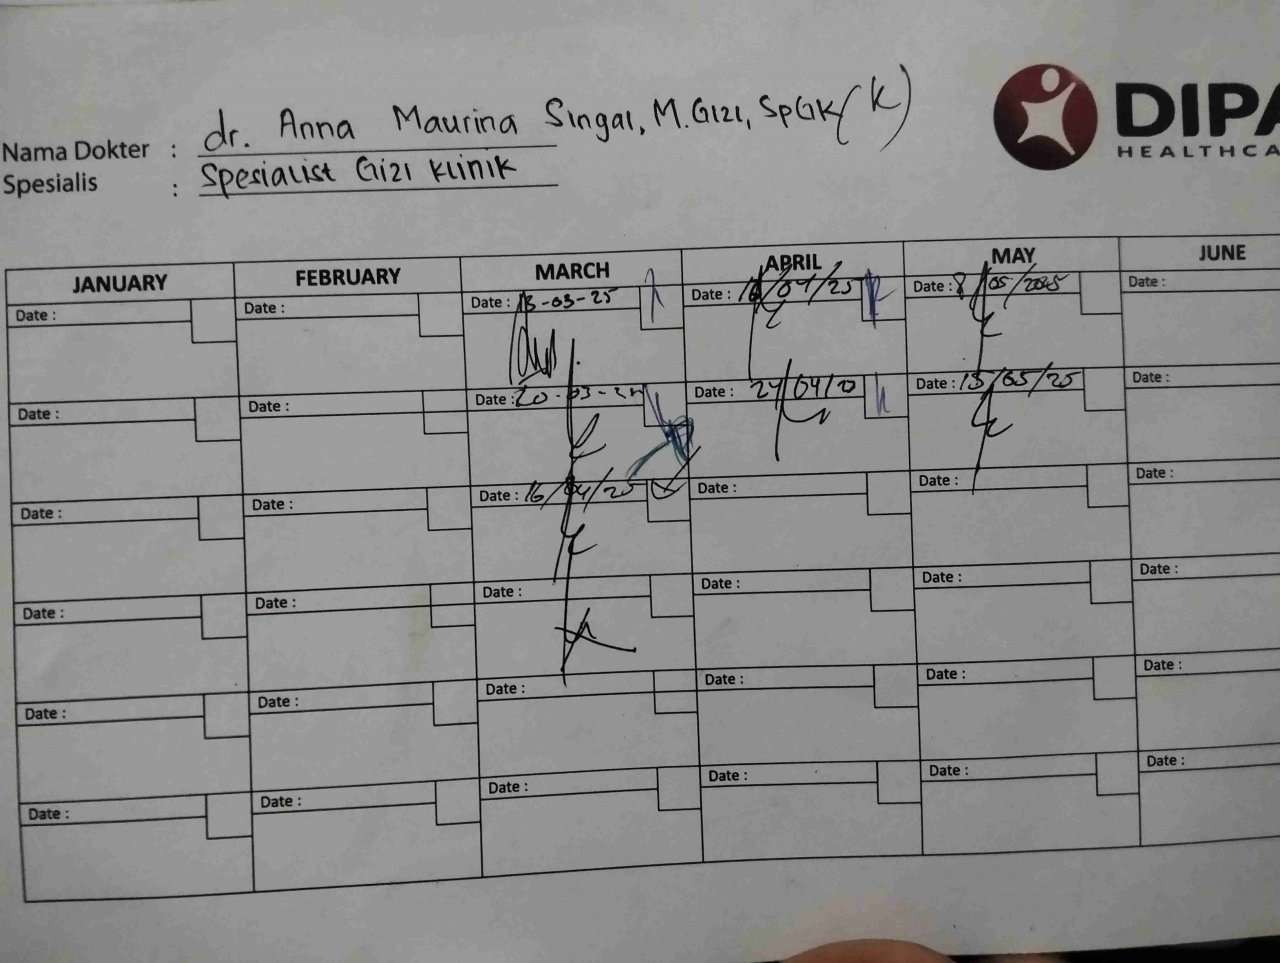 Nama Dokter : dr. Anna Maurina Singal, M.Gizi, SpGK(K)
Spesialis : Spesialist Gizi Klinik
DIPA
HEALTHCA
JANUARY FEBRUARY MARCH APRIL MAY JUNE
Date : Date : Date : 13-03-25 Date : /04/25 Date : 8/05/2025 Date :
Date : Date : Date : 20-03- Date : 24/04/ Date : 15/05/25 Date :
Date : Date : Date : 16/04/25 Date : Date : Date :
Date : Date : Date : Date : Date : Date :
Date : Date : Date : Date : Date : Date :
Date : Date : Date : Date : Date : Date :